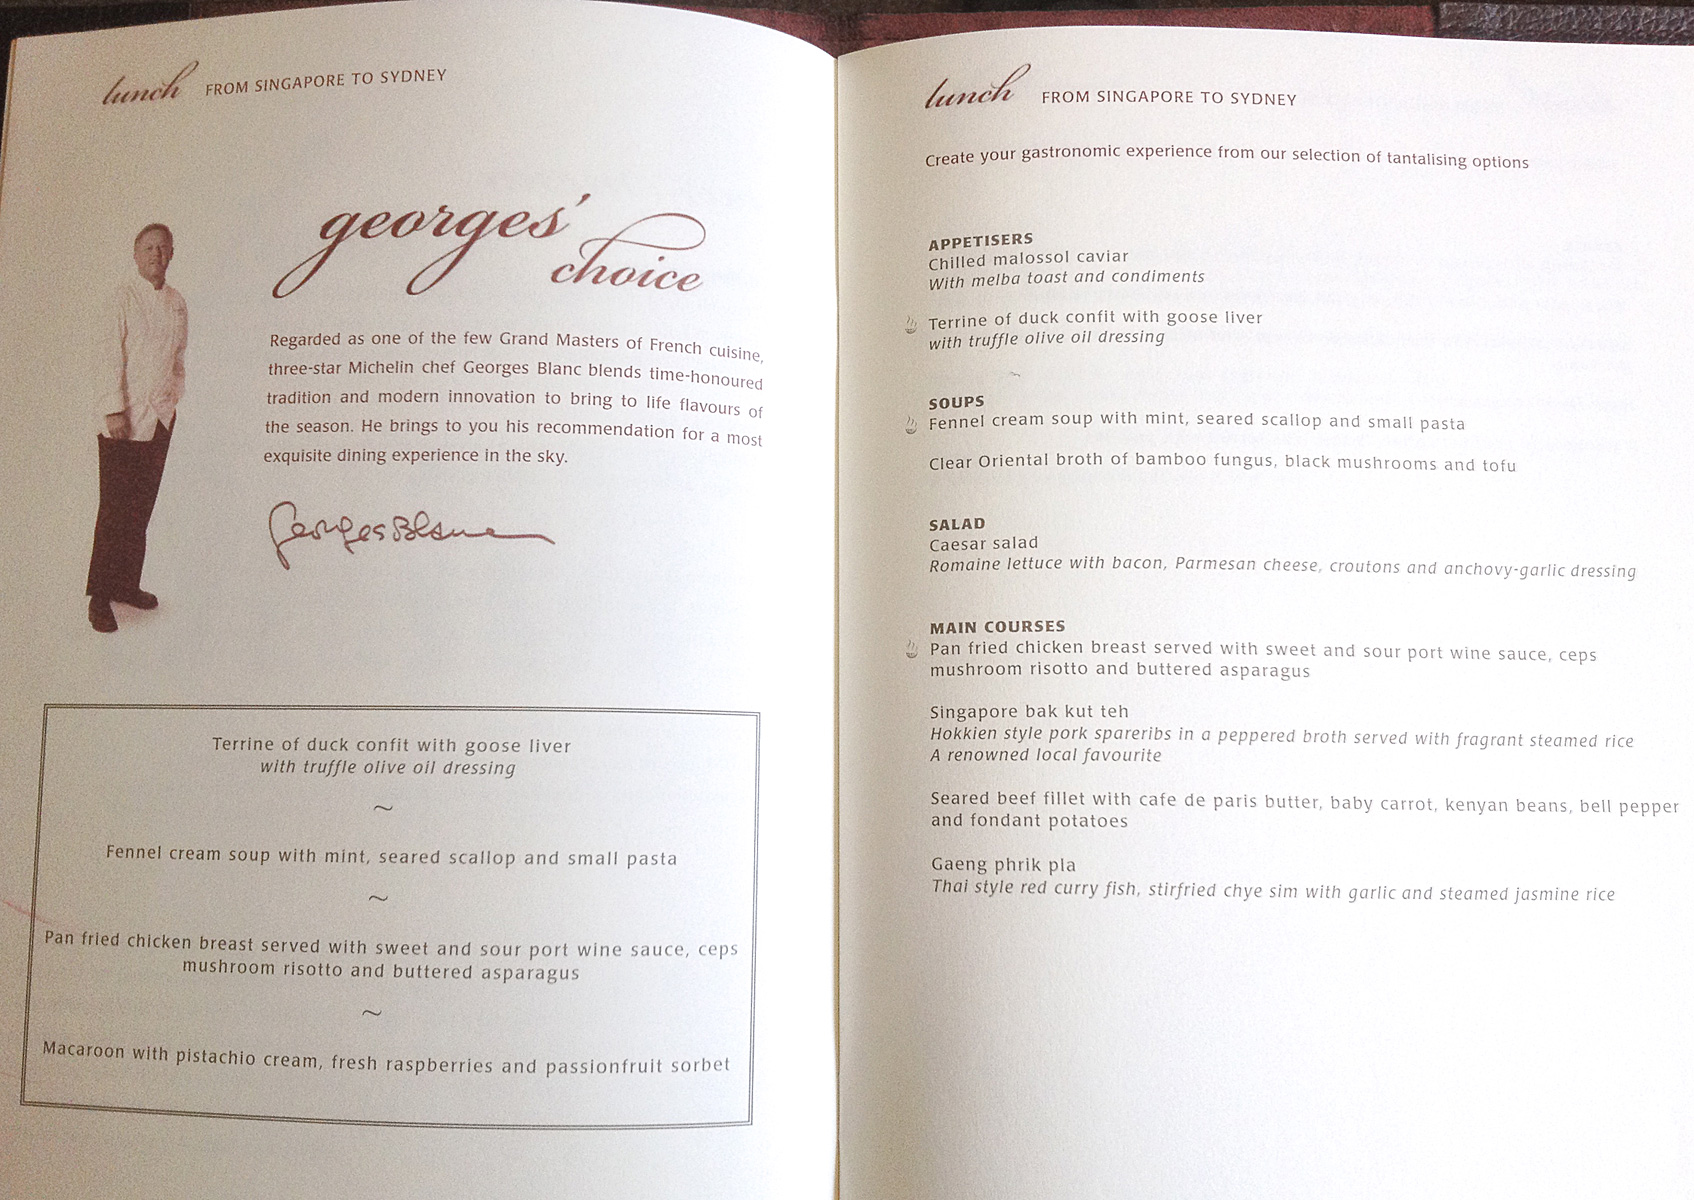 lunch FROM SINGAPORE TO SYDNEY
georges'
choice
Regarded as one of the few Grand Masters of French cuisine,
three-star Michelin chef Georges Blanc blends time-honoured
tradition and modern innovation to bring to life flavours of
the season. He brings to you his recommendation for a most
exquisite dining experience in the sky.
Georges Blanc
Terrine of duck confit with goose liver
with truffle olive oil dressing
~
Fennel cream soup with mint, seared scallop and small pasta
~
Pan fried chicken breast served with sweet and sour port wine sauce, ceps
mushroom risotto and buttered asparagus
~
Macaroon with pistachio cream, fresh raspberries and passionfruit sorbet
lunch FROM SINGAPORE TO SYDNEY
Create your gastronomic experience from our selection of tantalising options
APPETISERS
Chilled malossol caviar
With melba toast and condiments
Terrine of duck confit with goose liver
with truffle olive oil dressing
~
SOUPS
Fennel cream soup with mint, seared scallop and small pasta
Clear Oriental broth of bamboo fungus, black mushrooms and tofu
SALAD
Caesar salad
Romaine lettuce with bacon, Parmesan cheese, croutons and anchovy-garlic dressing
MAIN COURSES
Pan fried chicken breast served with sweet and sour port wine sauce, ceps
mushroom risotto and buttered asparagus
Singapore bak kut teh
Hokkien style pork spareribs in a peppered broth served with fragrant steamed rice
A renowned local favourite
Seared beef fillet with cafe de paris butter, baby carrot, kenyan beans, bell pepper
and fondant potatoes
Gaeng phrik pla
Thai style red curry fish, stirfried chye sim with garlic and steamed jasmine rice